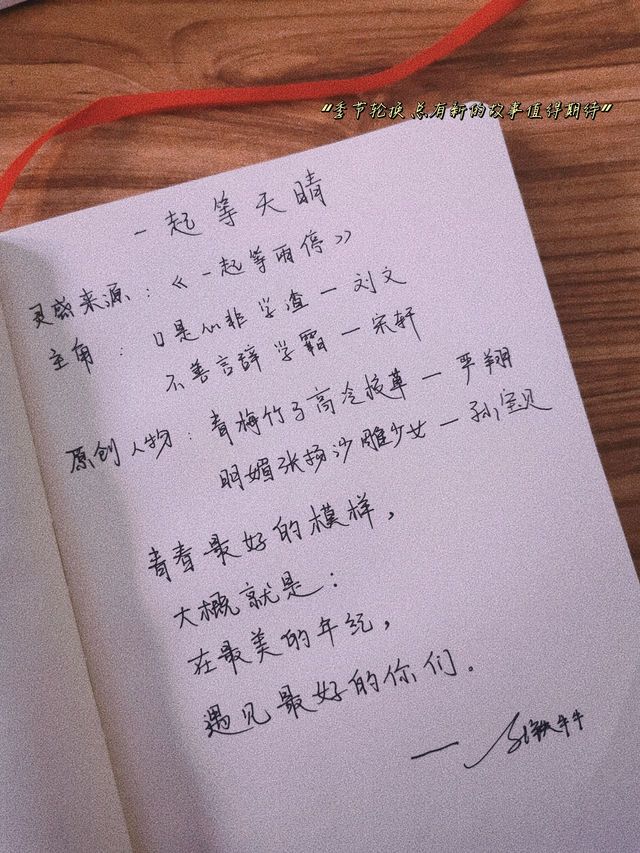 “季节轮换 总有新的故事值得期待”
一起等天晴
灵感来源：《一起等雨停》
主角：口是心非学渣—刘文
不善言辞学霸—宋轩
原创人物：青梅竹马高冷校草—严翔
明媚张扬沙雕少女—孙宝贝
青春最好的模样，
大概就是：
在最美的年纪，
遇见最好的你们。